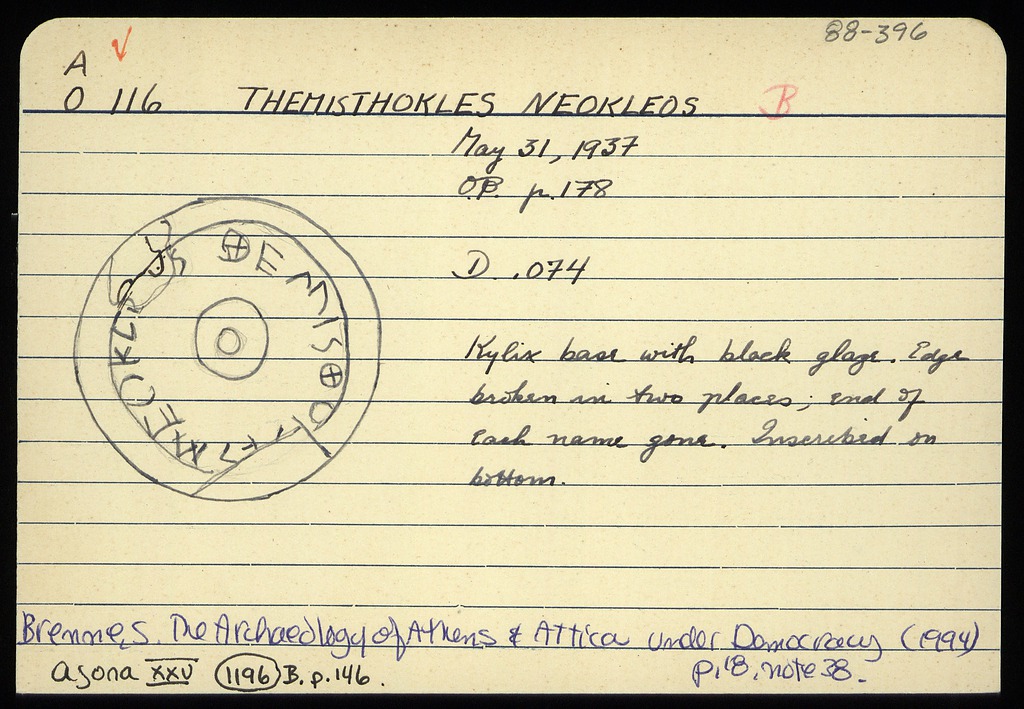 88-396
A ✓
O 116 THEMISTHOKLES NEOKLEOS B
May 31, 1937
O.P. p. 178
D .074
Kylix base with black glaze. Edge
broken in two places; end of
each name gone. Inscribed on
bottom.
Brenne, S. The Archaeology of Athens & Attica under Democracy (1994)
p. 18, note 38.
Agora XXV 1196 B. p. 146.